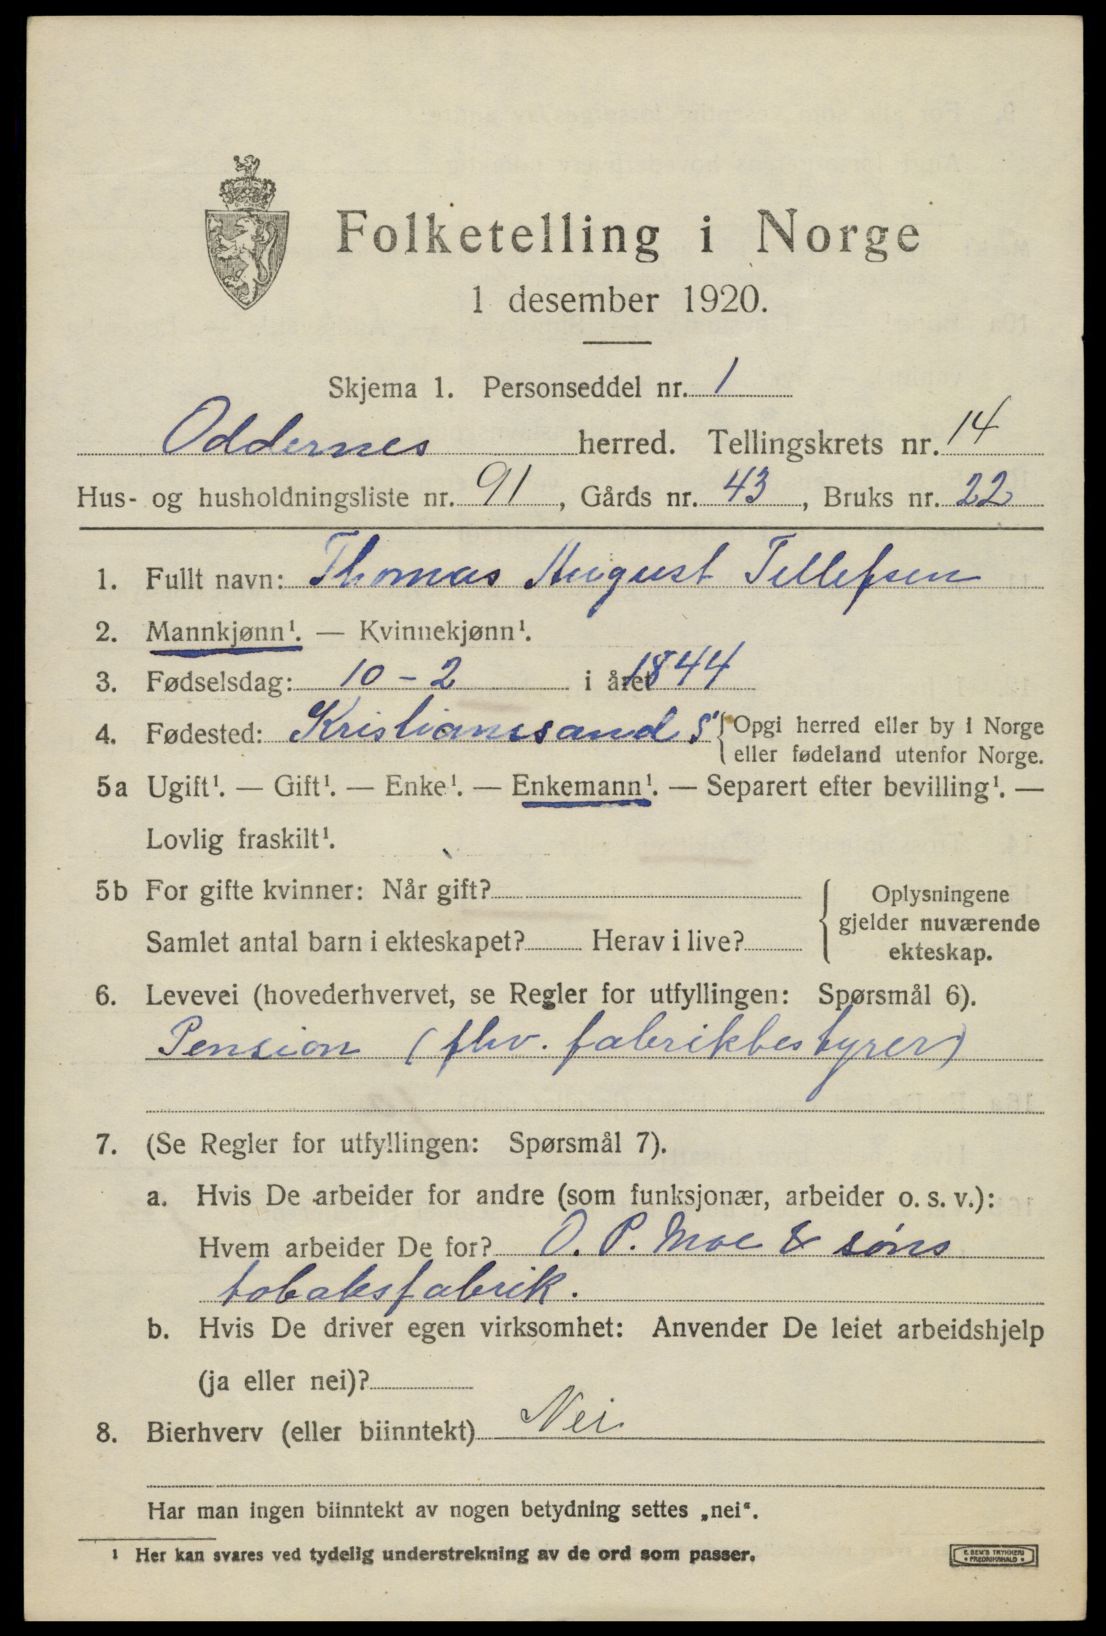 Folketelling i Norge
1 desember 1920.
Skjema 1. Personseddel nr. 1
Oddernes herred. Tellingskrets nr. 14
Hus- og husholdningsliste nr. 91, Gårds nr. 43, Bruks nr. 22
1. Fullt navn: Thomas August Tellefsen
2. Mannkjønn¹. — Kvinnekjønn¹.
3. Fødselsdag: 10 - 2 i året 1844
4. Fødested: Kristianssand S { Opgi herred eller by i Norge
eller fødeland utenfor Norge.
5a Ugift¹. — Gift¹. — Enke¹. — Enkemann¹. — Separert efter bevilling¹. —
Lovlig fraskilt¹.
5b For gifte kvinner: Når gift?
Samlet antal barn i ekteskapet? Herav i live?
{ Oplysningene
gjelder nuværende
ekteskap.
6. Levevei (hovederhvervet, se Regler for utfyllingen: Spørsmål 6).
Pension (fhv. fabrikbestyrer)
7. (Se Regler for utfyllingen: Spørsmål 7).
a. Hvis De arbeider for andre (som funksjonær, arbeider o. s. v.):
Hvem arbeider De for? O. P. Moe & søns
tobaksfabrik.
b. Hvis De driver egen virksomhet: Anvender De leiet arbeidshjelp
(ja eller nei)?
8. Bierhverv (eller biinntekt) Nei
Har man ingen biinntekt av nogen betydning settes „nei".
¹ Her kan svares ved tydelig understrekning av de ord som passer.
E. SEM'S TRYKKERI
• FREDRIKSHALD •